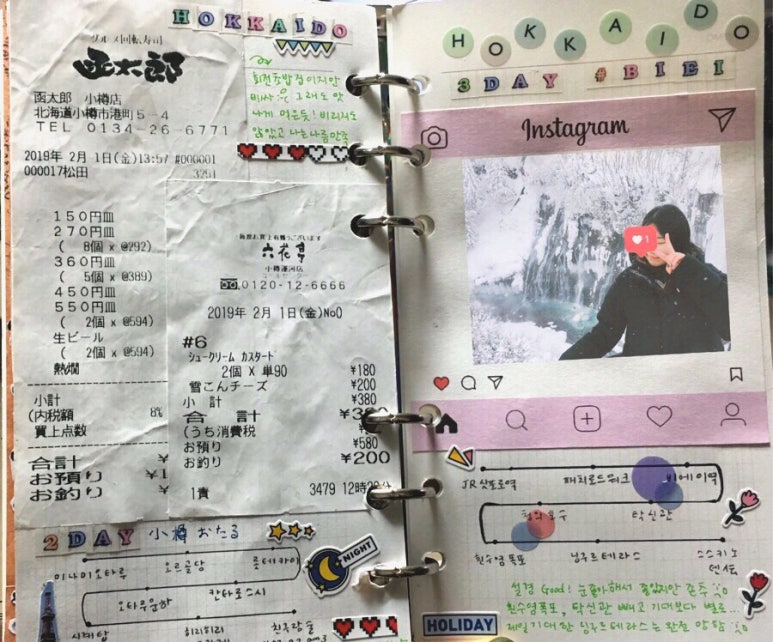 HOKKAIDO
グルメ回転寿司
函太郎
函太郎 小樽店
北海道小樽市港町5-4
TEL 0134-26-6771
2019年 2月 1日(金)13:57 #000001
000017松田 3251
150円皿
270円皿
( 8個 x @292)
360円皿
( 5個 x @389)
450円皿
550円皿
( 2個 x @594)
生ビール
( 2個 x @594)
熱燗
小計
(内税額 8%
買上点数
合計 ¥
お預り ¥1
お釣り ¥
회전초밥집이지만
비싸
그래도 맛
나게 먹은듯! 비리지도
않았고 나는 나름 만족
毎度お買上有難うございます
六花亭
小樽運河店
0120-12-6666
2019年 2月 1日(金)No0
#6
シュークリーム カスタード
2個 x 単90 ¥180
雪こんチーズ ¥200
小 計 ¥380
合 計
(うち消費税
お預り ¥580
お釣り ¥200
1責 3479 12時
2DAY 小樽 おたる
미나미오타루 오르골당 룻테카이
오타루운하 칸타로스시
NIGHT
HOKKAIDO
3DAY #BIEI
Instagram
1
JR삿포로역 패치로드워크 비에이역
청의호수 탁신관
흰수염폭포 닝구르테라스 스스키노
설경 Good! 눈
흰수염폭포, 탁신관 빼고 기대보다 별로...
제일 기대한 닝구르테라스는 완전
HOLIDAY